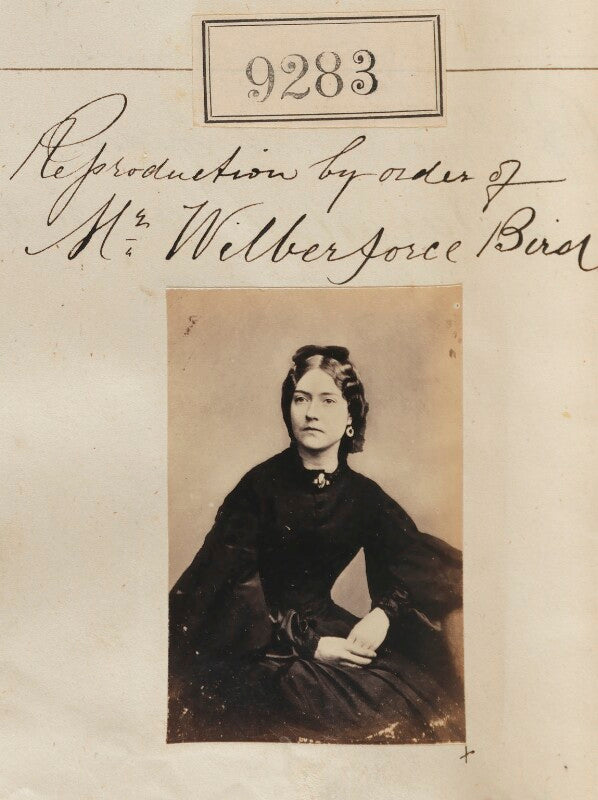 9283
Reproduction by order of
Mr. Wilberforce Bird
x